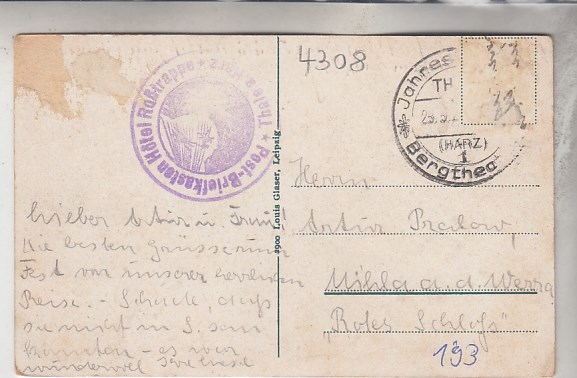 4308
Post-Briefkasten Hôtel Roßtrappe
Thale a. Harz
Jahres
TH
(HARZ)
1
Bergthea
2900 Louis Glaser, Leipzig
Lieber Artur u.
Die besten Grüsse zum
Fest von unserer herrlichen
Reise. - Schade, daß
sie nicht in S. sein
konnten - es war
wundervoll
Herrn
Artur
Mihla a. d. Werra
"Rotes Schloß"
193